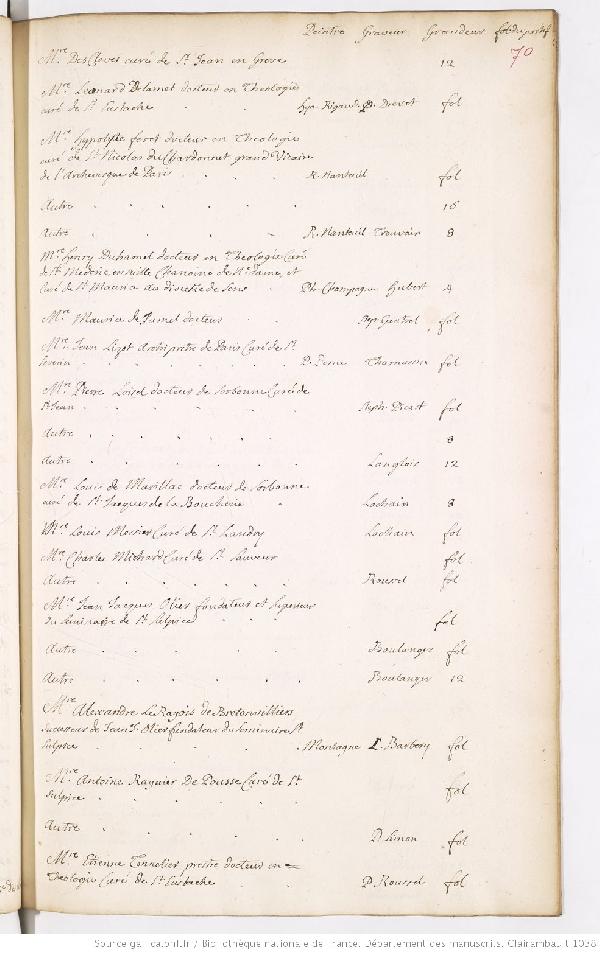 Peintre Graveur Grandeur
70
Mre Des Cloves curé de St Jean en Greve 12
Mre Leonard Delamet docteur en Theologie
curé de St Eustache Hya. Rigaud P. Drevet fol
Mre Hypolyte feret docteur en Theologie
curé de St Nicolas du Chardonnet grand Vicaire
de l'Archevesque de Paris R. Nanteuil fol
Autre 16
Autre R. Nanteuil Trouvain 8
Mre Henry Duhamel docteur en Theologie Curé
de St Mederic en ville Chanoine de Ne Dame, et
Curé de St Maurice du diocese de Sens Ph. Champagne Hubert 4
Mre Maurice de Jumel docteur fol
Mre Jean Lizot Archiprestre de Paris Curé de St
Severin fol
Mre Pierre Loisel docteur de Sorbonne Curé de
St Jean Steph. Picart fol
Autre 8
Autre Langlois 12
Mre Louis de Marillac docteur de Sorbonne
curé de St Jacques de la Boucherie Lochain 8
Mre Louis Messier Curé de St Landry Lochain fol
Mre Charles Michard Curé de St Sauveur fol
Autre Roussel fol
Mre Jean Jacques Olier fondateur et Superieur
du Seminaire de St Sulpice fol
Autre Boulanger fol
Autre Boulanger 12
Mre Alexandre Le Ragois de Bretonvilliers
Successeur de Jean J. Olier fondateur du Seminaire St
Sulpice Montagne L. Barbery fol
Mre Antoine Raguier De Pousse Curé de St
Sulpice fol
Autre P. Simon fol
Mre Etienne Tonnelier prestre docteur en
Theologie Curé de St Eustache P. Roussel fol
Source gallica.bnf.fr / Bibliothèque nationale de France. Département des manuscrits. Clairambault 1038